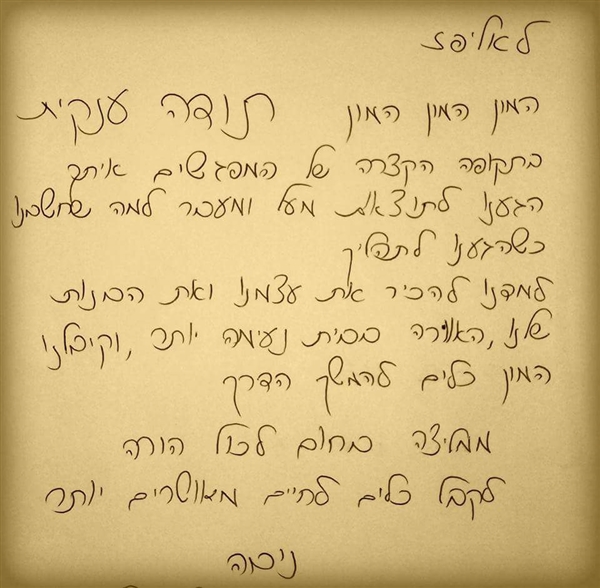 לאליפז
המון המון המון תודה ענקית
בתקופה הקצרה של המפגשים איתך
הגענו לתוצאות מעל ומעבר למה שחשבנו
כשהגענו לתהליך
למדנו להכיר את עצמנו ואת הבנות
שלנו, האווירה בבית נעימה יותר, וקיבלנו
המון כלים להמשך הדרך
ממליצה בחום לכול הורה
לקבל כלים לחיים מאושרים יותר